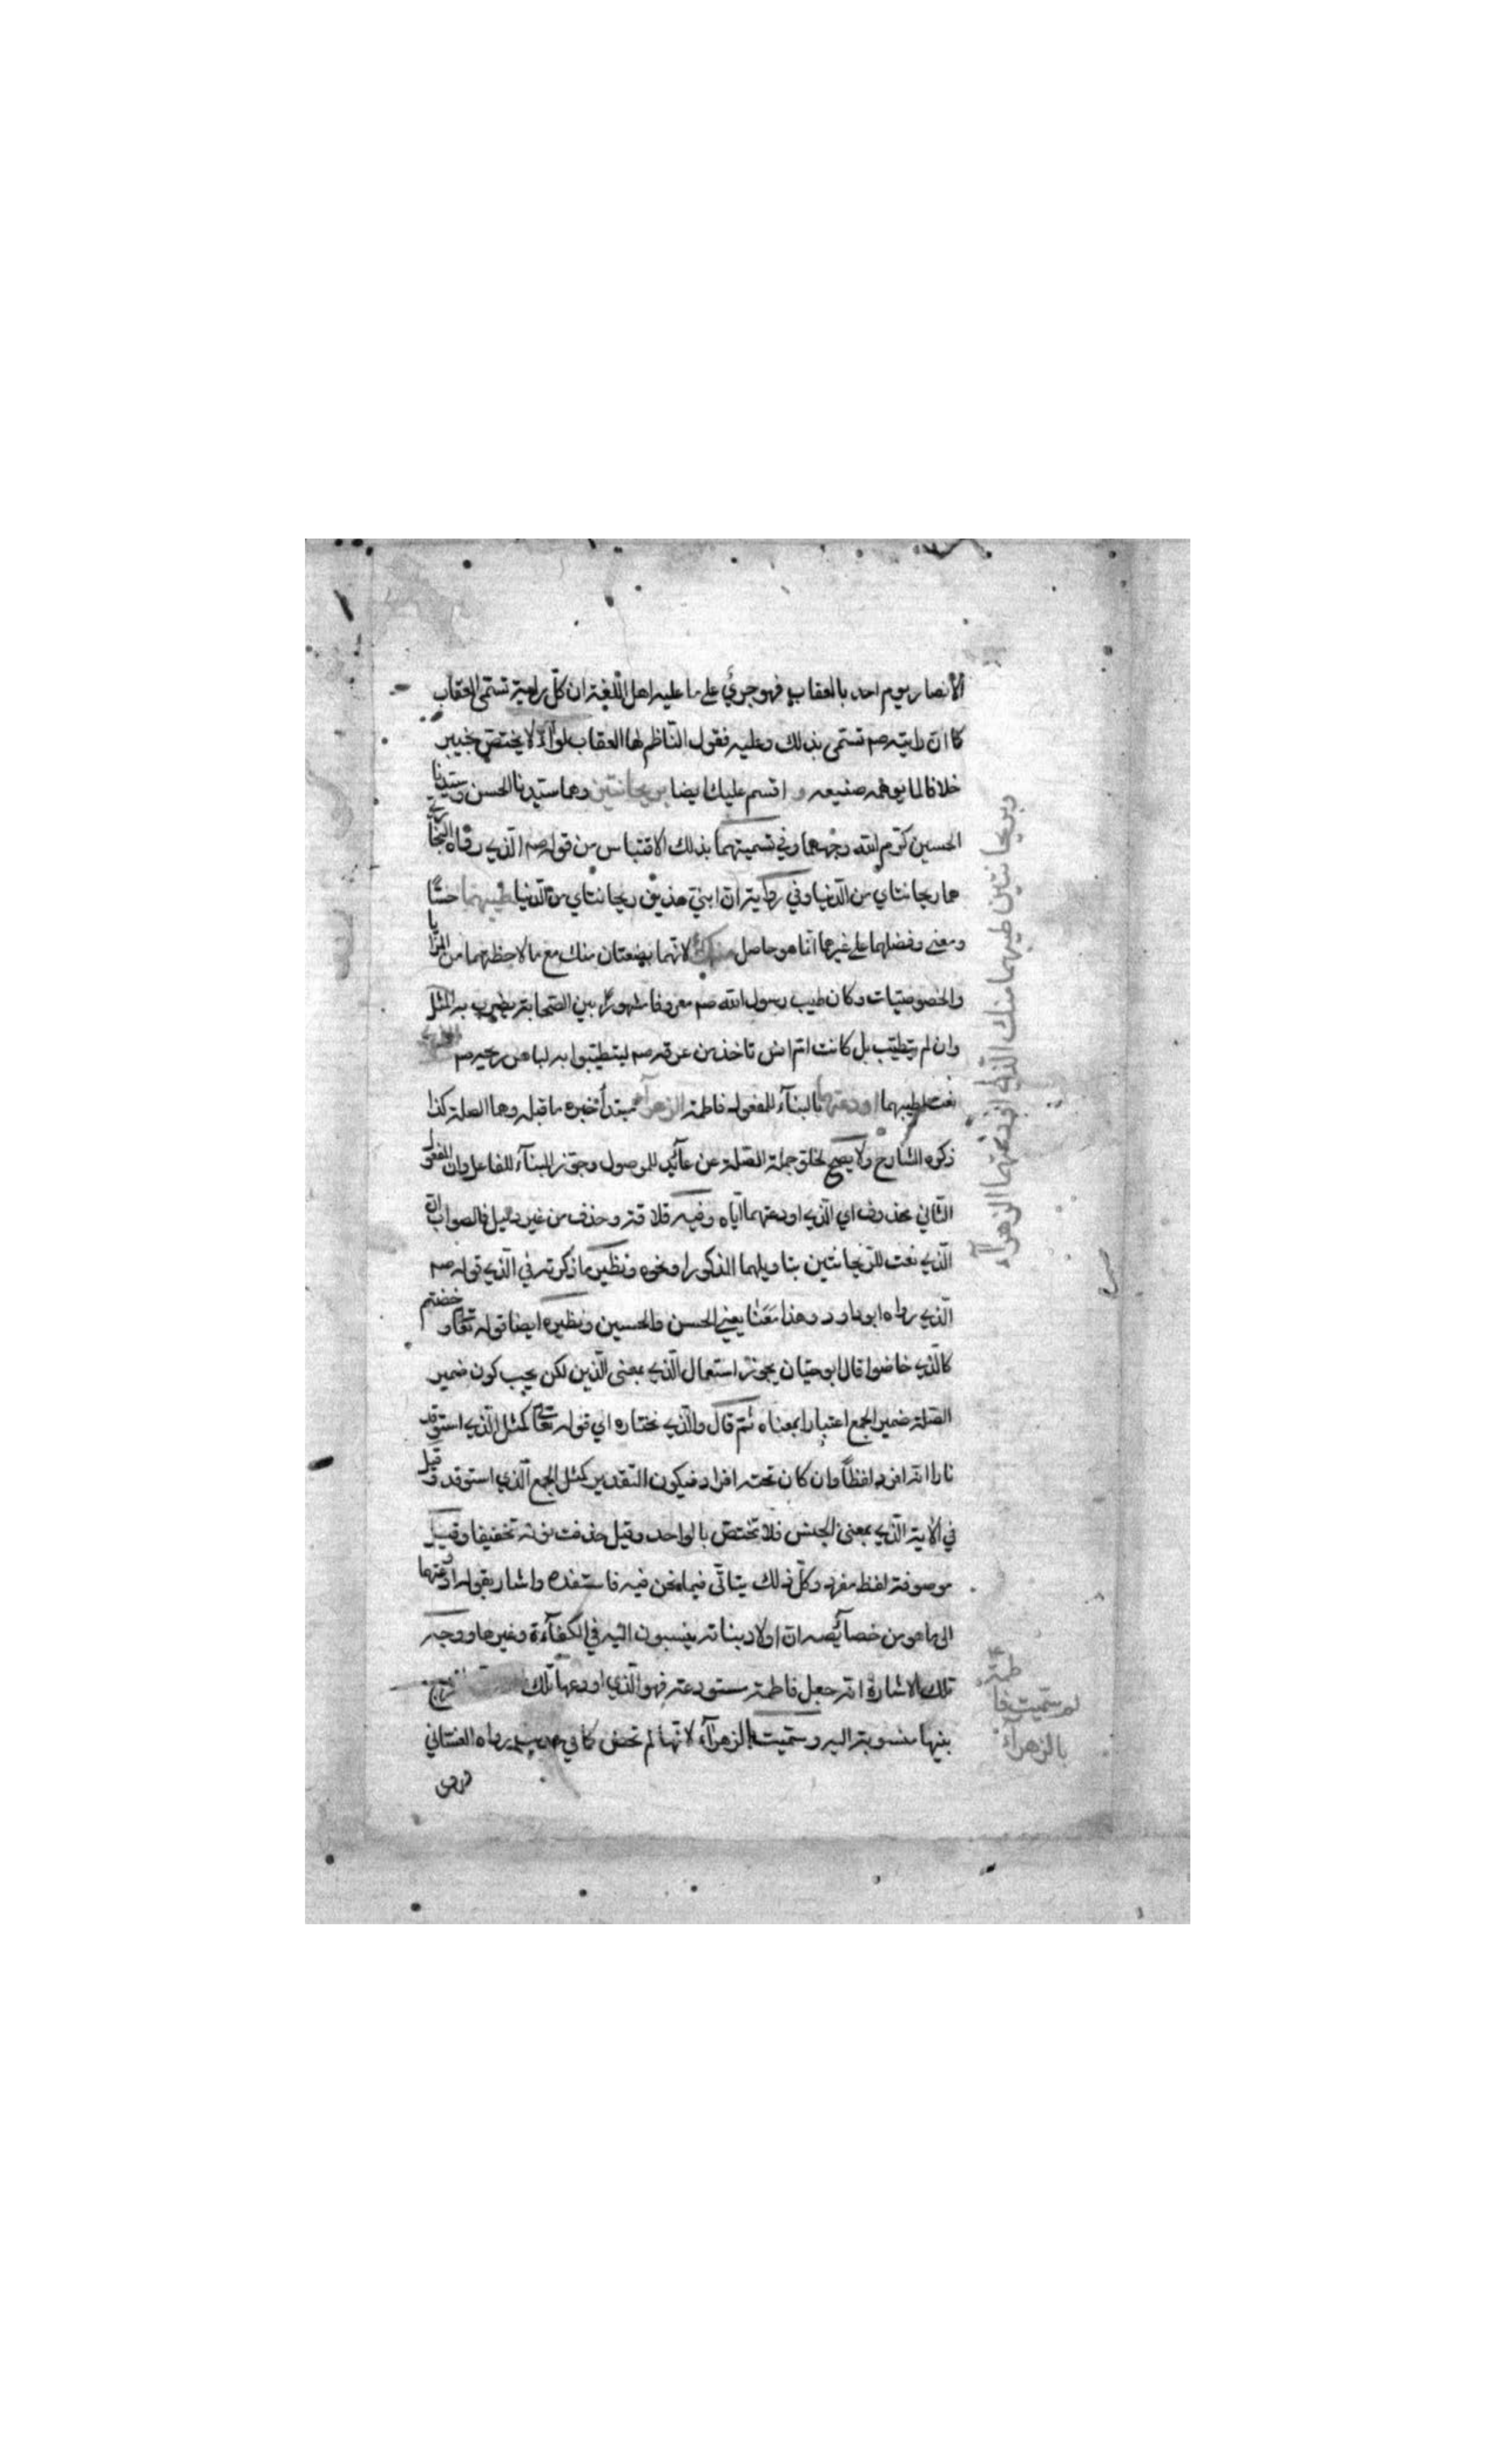 الأنصار يوم احد بالعقاب فهو جري على ما عليه اهل اللغة ان كل راية تسمى العقاب
كما ان رايته صم تسمى بذلك وعليه فقول الناظم لها العقاب لواء لا يختص بخيبر
خلافا لما يوهمه صنيعه و اقسم عليك ايضا بريحانتين وهما سيدنا الحسن وسيدنا
الحسين كرم الله وجههما وفي تسميتهما بذلك الاقتباس من قوله صم الذي رواه البخاري
هما ريحانتاي من الدنيا وفي رواية ان ابني هذين ريحانتاي من الدنيا طيبهما حسًّا
ومعنى وفضلهما على غيرهما انما هو حاصل منك لانهما بضعتان منك مع مالاحظتهما من المزايا
والخصوصيات وكان طيب رسول الله صم معروفا مشهورًا بين الصحابة يضرب به المثل
وان لم يتطيب بل كانت تاخذ من عرقه صم ليتطيبوا به
نعت لطيبهما اودعتهما بالبناء للمفعول فاطمة الزهراء مبتدأ خبره ما قبله وهما الصلة كذا
ذكره الشارح ولا يصح لخلو جملة الصلة عن عائد للموصول وجوز البناء للفاعل وان المفعول
الثاني محذوف اي الذي اودعتهما اياه وفيه قلاقة وحذف من غير دليل فالصواب ان
الذي نعت للريحانتين بتاويلهما الذكور او نحوه ونظير ما ذكرته في الذي قوله صم
الذي رواه ابو داود وهذا يعني الحسن والحسين ونظيره ايضا قوله تعالى وخضتم
كالذي خاضوا قال ابو حيان يجوز استعمال الذي بمعنى الذين لكن يجب كون ضمير
الصلة ضمير الجمع اعتبارا بمعناه ثم قال والذي نختاره اي في قوله تعالى كمثل الذي استوقد
نارا انه افرد لفظاً وان كان تحته افراد فيكون التقدير كمثل الجمع الذي استوقد وقيل
في الآية الذي بمعنى الجنس فلا تختص بالواحد وقيل حذفت نونه تخفيفا وقيل
موصوفة لفظ مفرد وكل ذلك يتاتى فيما نحن فيه فاستفده واشار بقوله اودعتهما
الى ما هو من خصائصه ان اولاد بناته ينسبون اليه في الكفاءة وغيرها ووجه
تلك الاشارة انه جعل فاطمة مستودعة فهو الذي اودعها تلك
بنيها منسوبة اليه وسميت بالزهراء لانها لم تحض كما في حديث رواه الغساني
وبريحانتين طيبهما منك الذي اودعتهما الزهراء
لم سميت فاطمة
بالزهراء